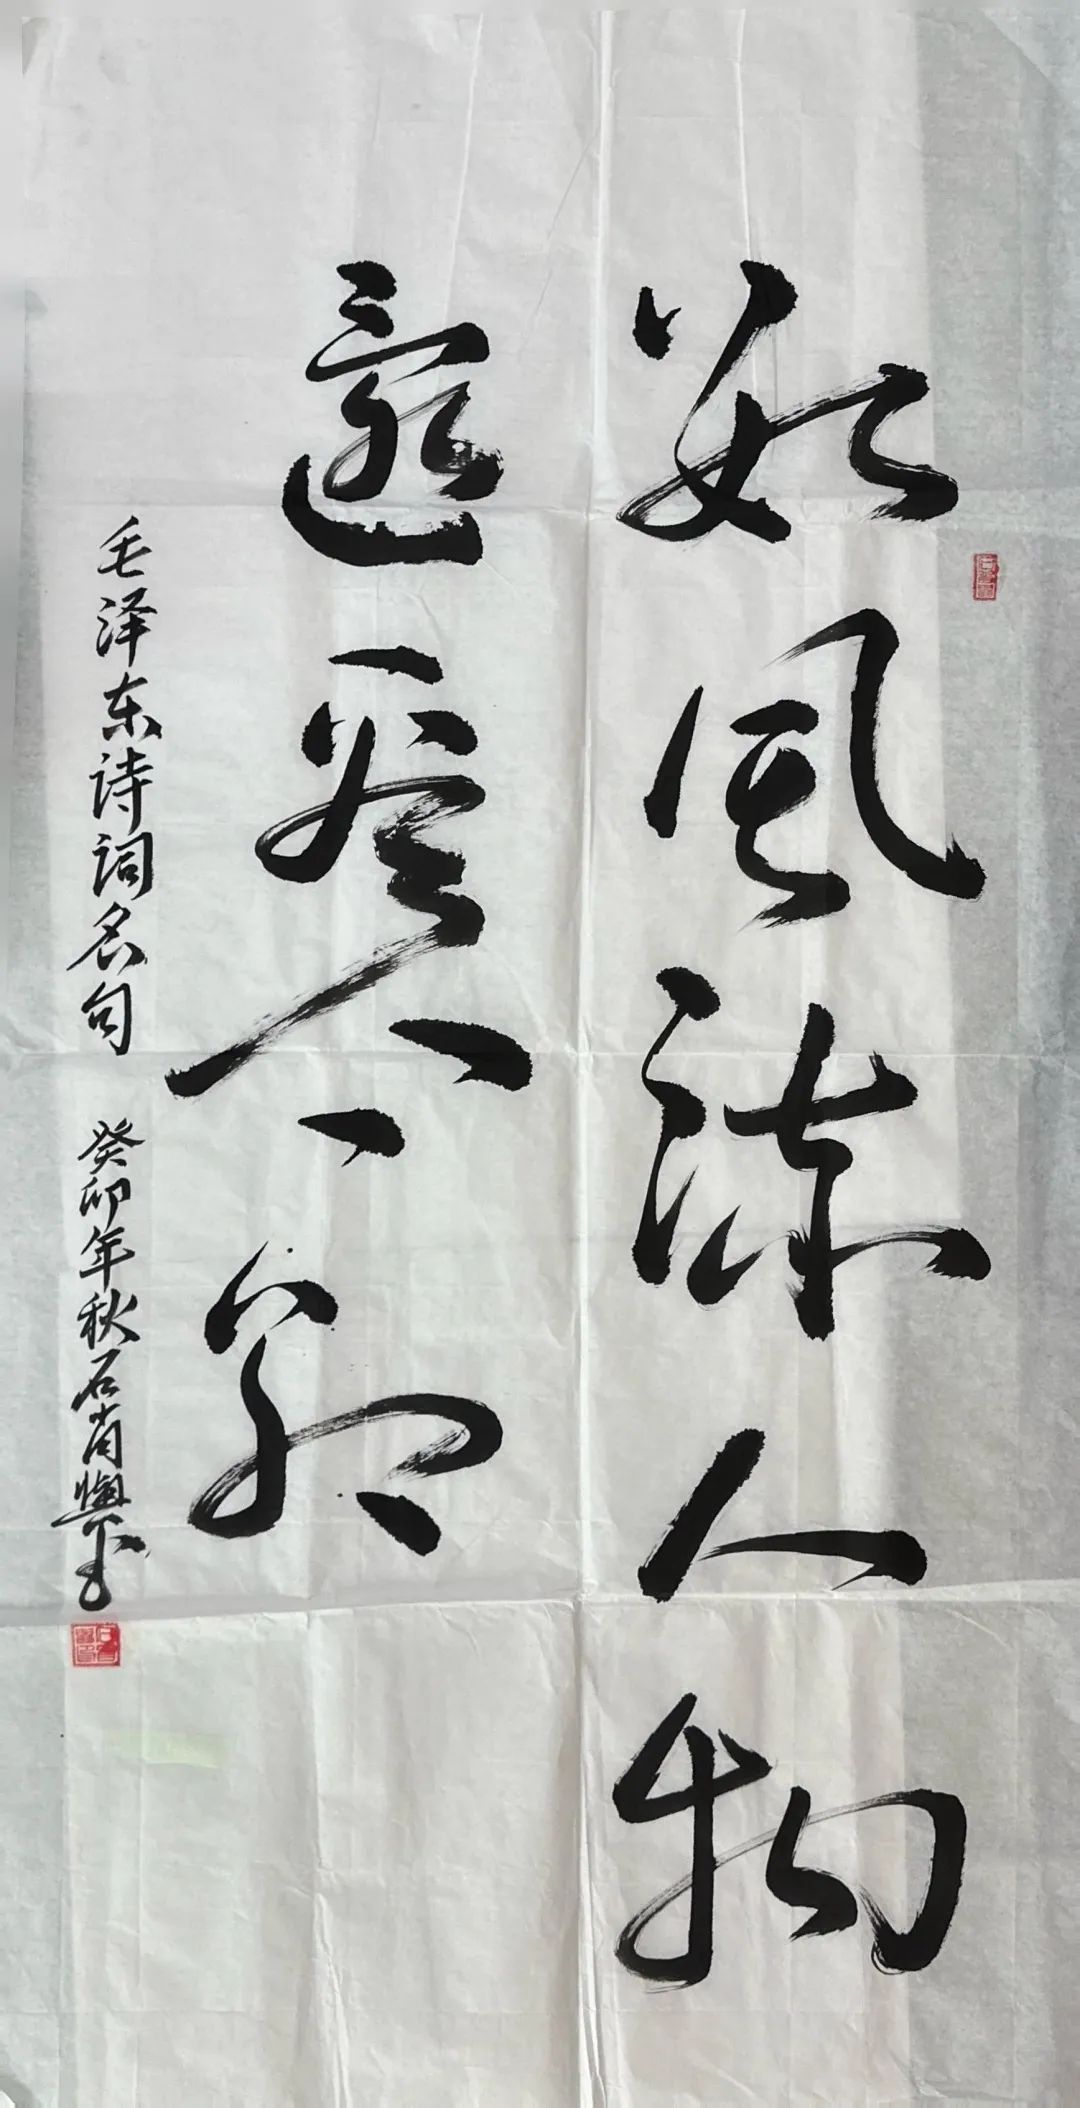 数风流人物
还看今朝
毛泽东诗词名句 癸卯年秋石肖